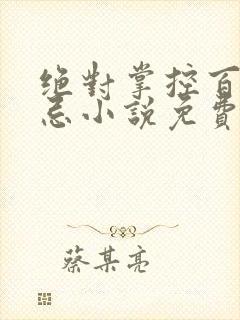 絕對掌控百
忌小說免費
蔡某亮